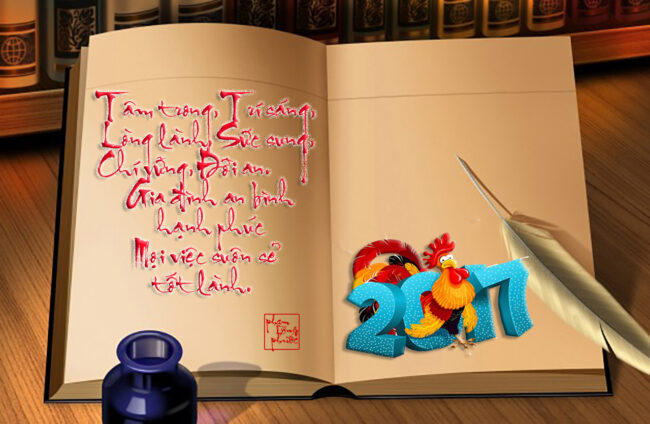 Tâm trong, Trí sáng,
Lòng lành, Sức sung,
Chí vững, Đời an.
Gia đình an bình
hạnh phúc
Mọi việc suôn sẻ
tốt lành.
phạm
hồng
phước
2017